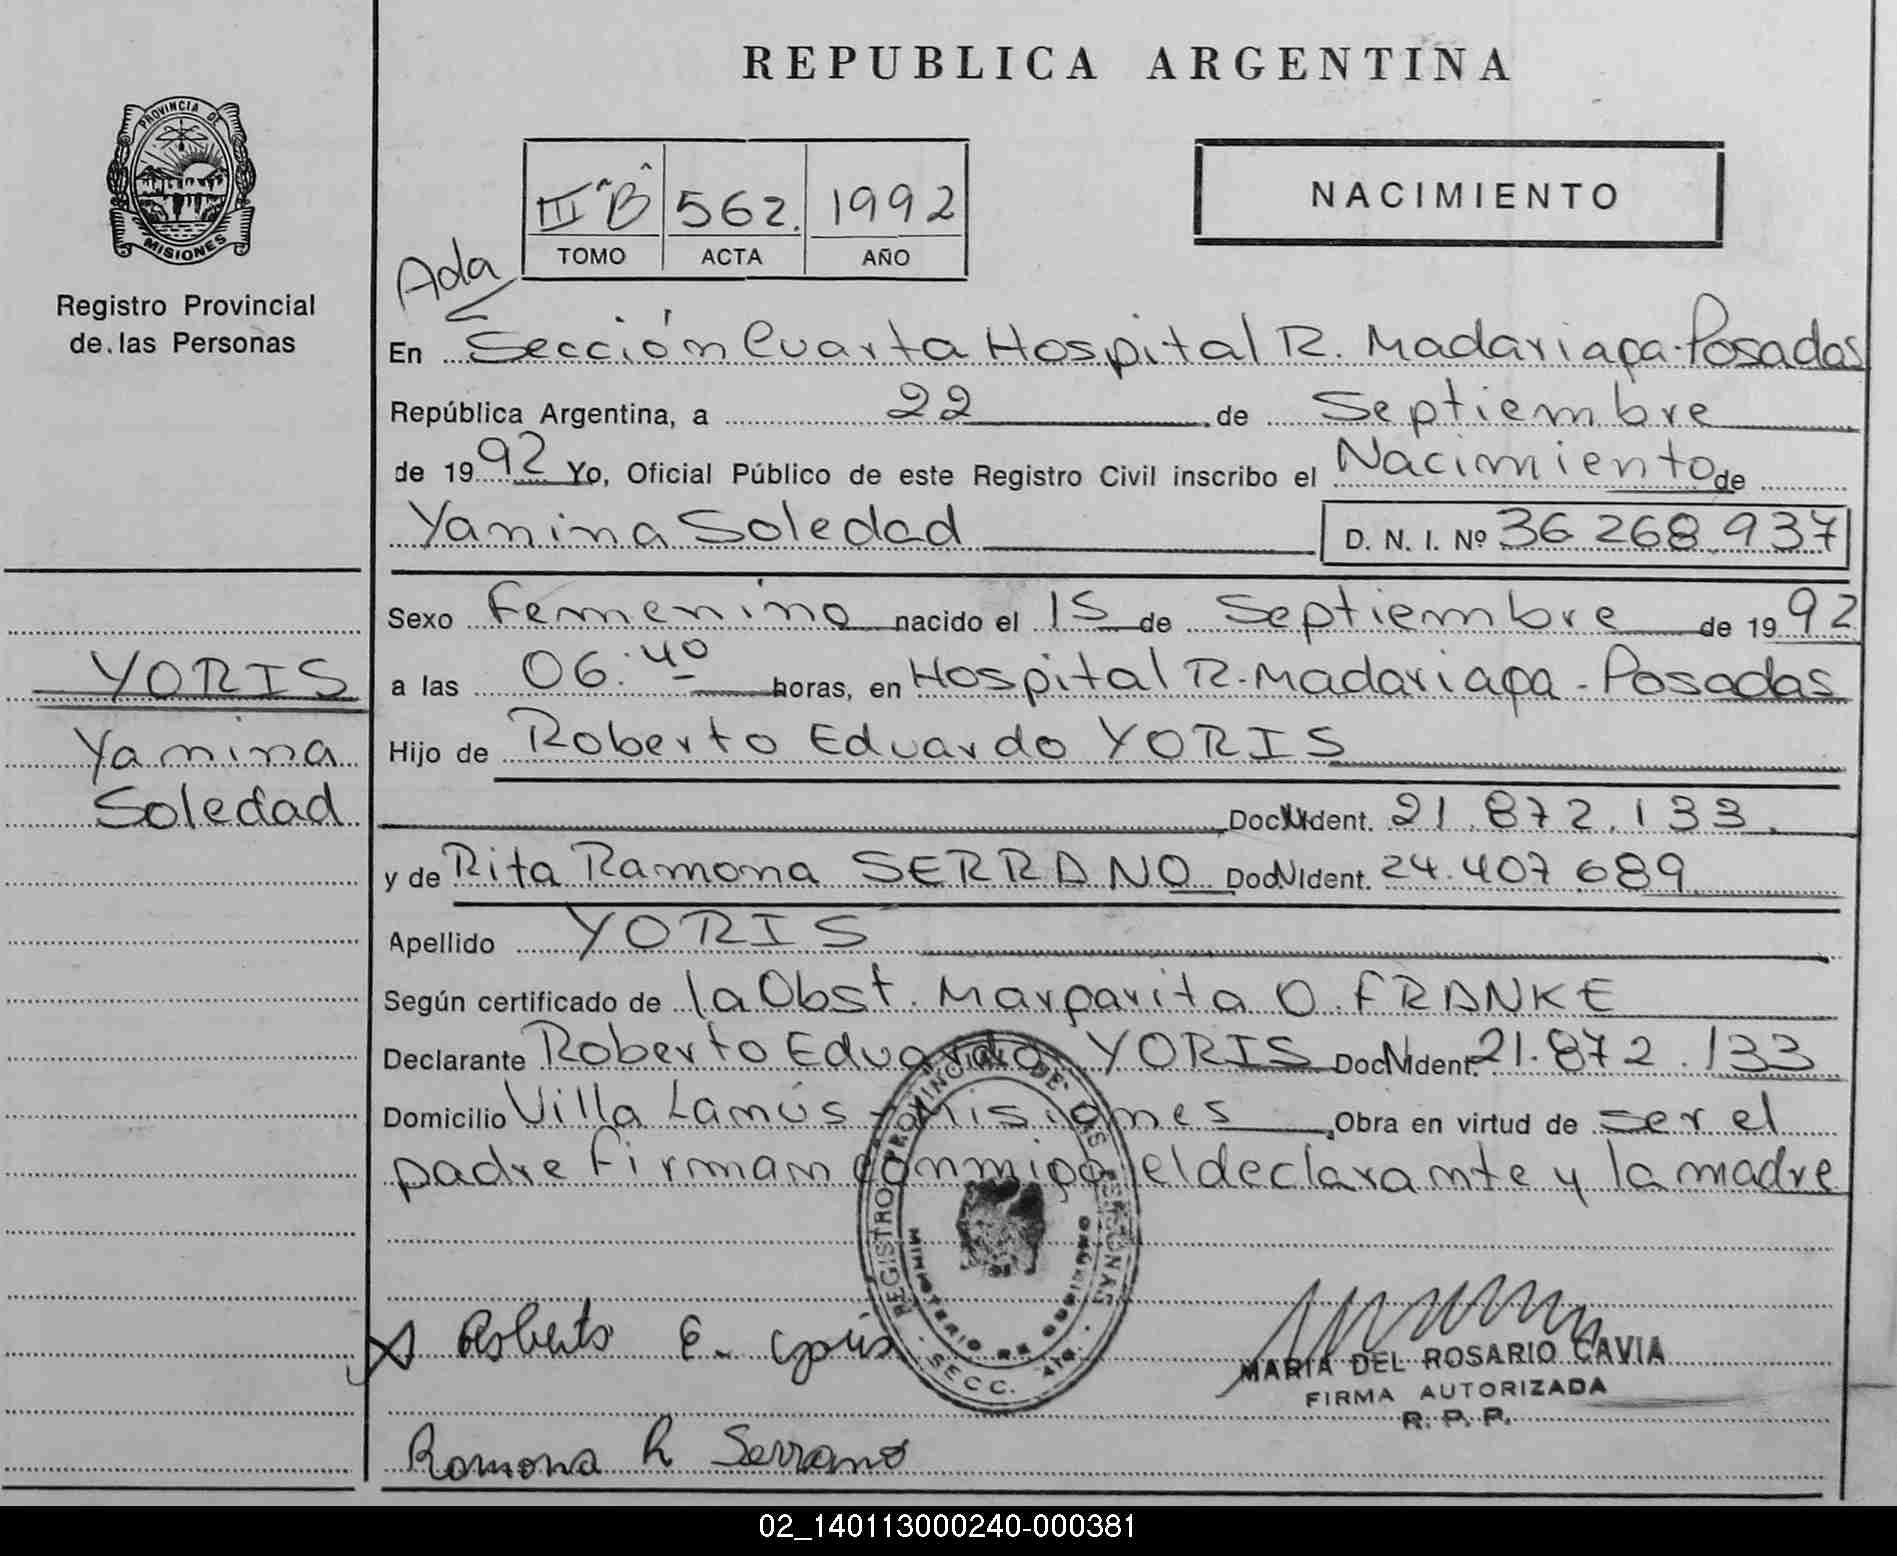 REPUBLICA ARGENTINA
PROVINCIA DE
MISIONES
Registro Provincial
de las Personas
NACIMIENTO
III B 562. 1992
TOMO ACTA AÑO
Ada
En Sección Cuarta Hospital R. Madariaga-Posadas
República Argentina, a 22 de Septiembre
de 1992 Yo, Oficial Público de este Registro Civil inscribo el Nacimiento de
Yanina Soledad D. N. I. Nº 36 268 937
Sexo Femenino nacido el 15 de Septiembre de 1992
YORIS
a las 06:40 horas, en Hospital R. Madariaga - Posadas
Yanina
Hijo de Roberto Eduardo YORIS
Soledad
Doc. Ident. 21.872.133.
y de Rita Ramona SERRANO Doc. Ident. 24.407 689
Apellido YORIS
Según certificado de la Obst. Margarita O. FRANKE
Declarante Roberto Eduardo YORIS Doc. Ident. 21.872.133
Domicilio Villa Lanús - Misiones Obra en virtud de ser el
padre Firman conmigo el declarante y la madre
REGISTRO PROVINCIAL DE LAS PERSONAS
MINISTERIO DE GOBIERNO
SECC. 4ta.
Roberto E.
MARIA DEL ROSARIO CAVIA
FIRMA AUTORIZADA
R. P. P.
Ramona R Serrano
02_140113000240-000381